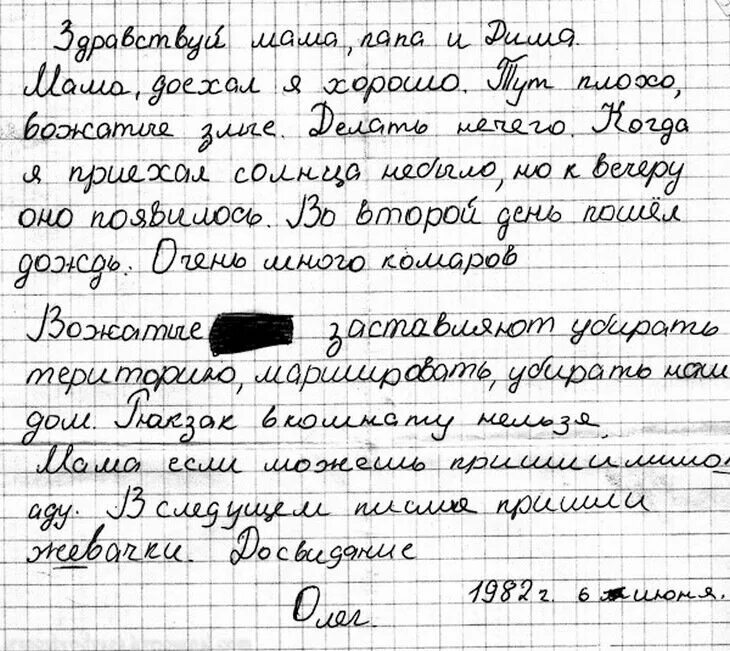 Здравствуй мама, папа и Дима.
Мама, доехал я хорошо. Тут плохо,
вожатые злые. Делать нечего. Когда
я приехал солнца небыло, но к вечеру
оно появилось. Во второй день пошёл
дождь. Очень много комаров
Вожатые заставляют убирать
територию, маршировать, убирать наш
дом. Рюкзак в комнату нельзя.
Мама если можешь пришли лимо
аду. В следущем письме пришли
жевачки. Досвидание
1982 г. 6 июня.
Олег.